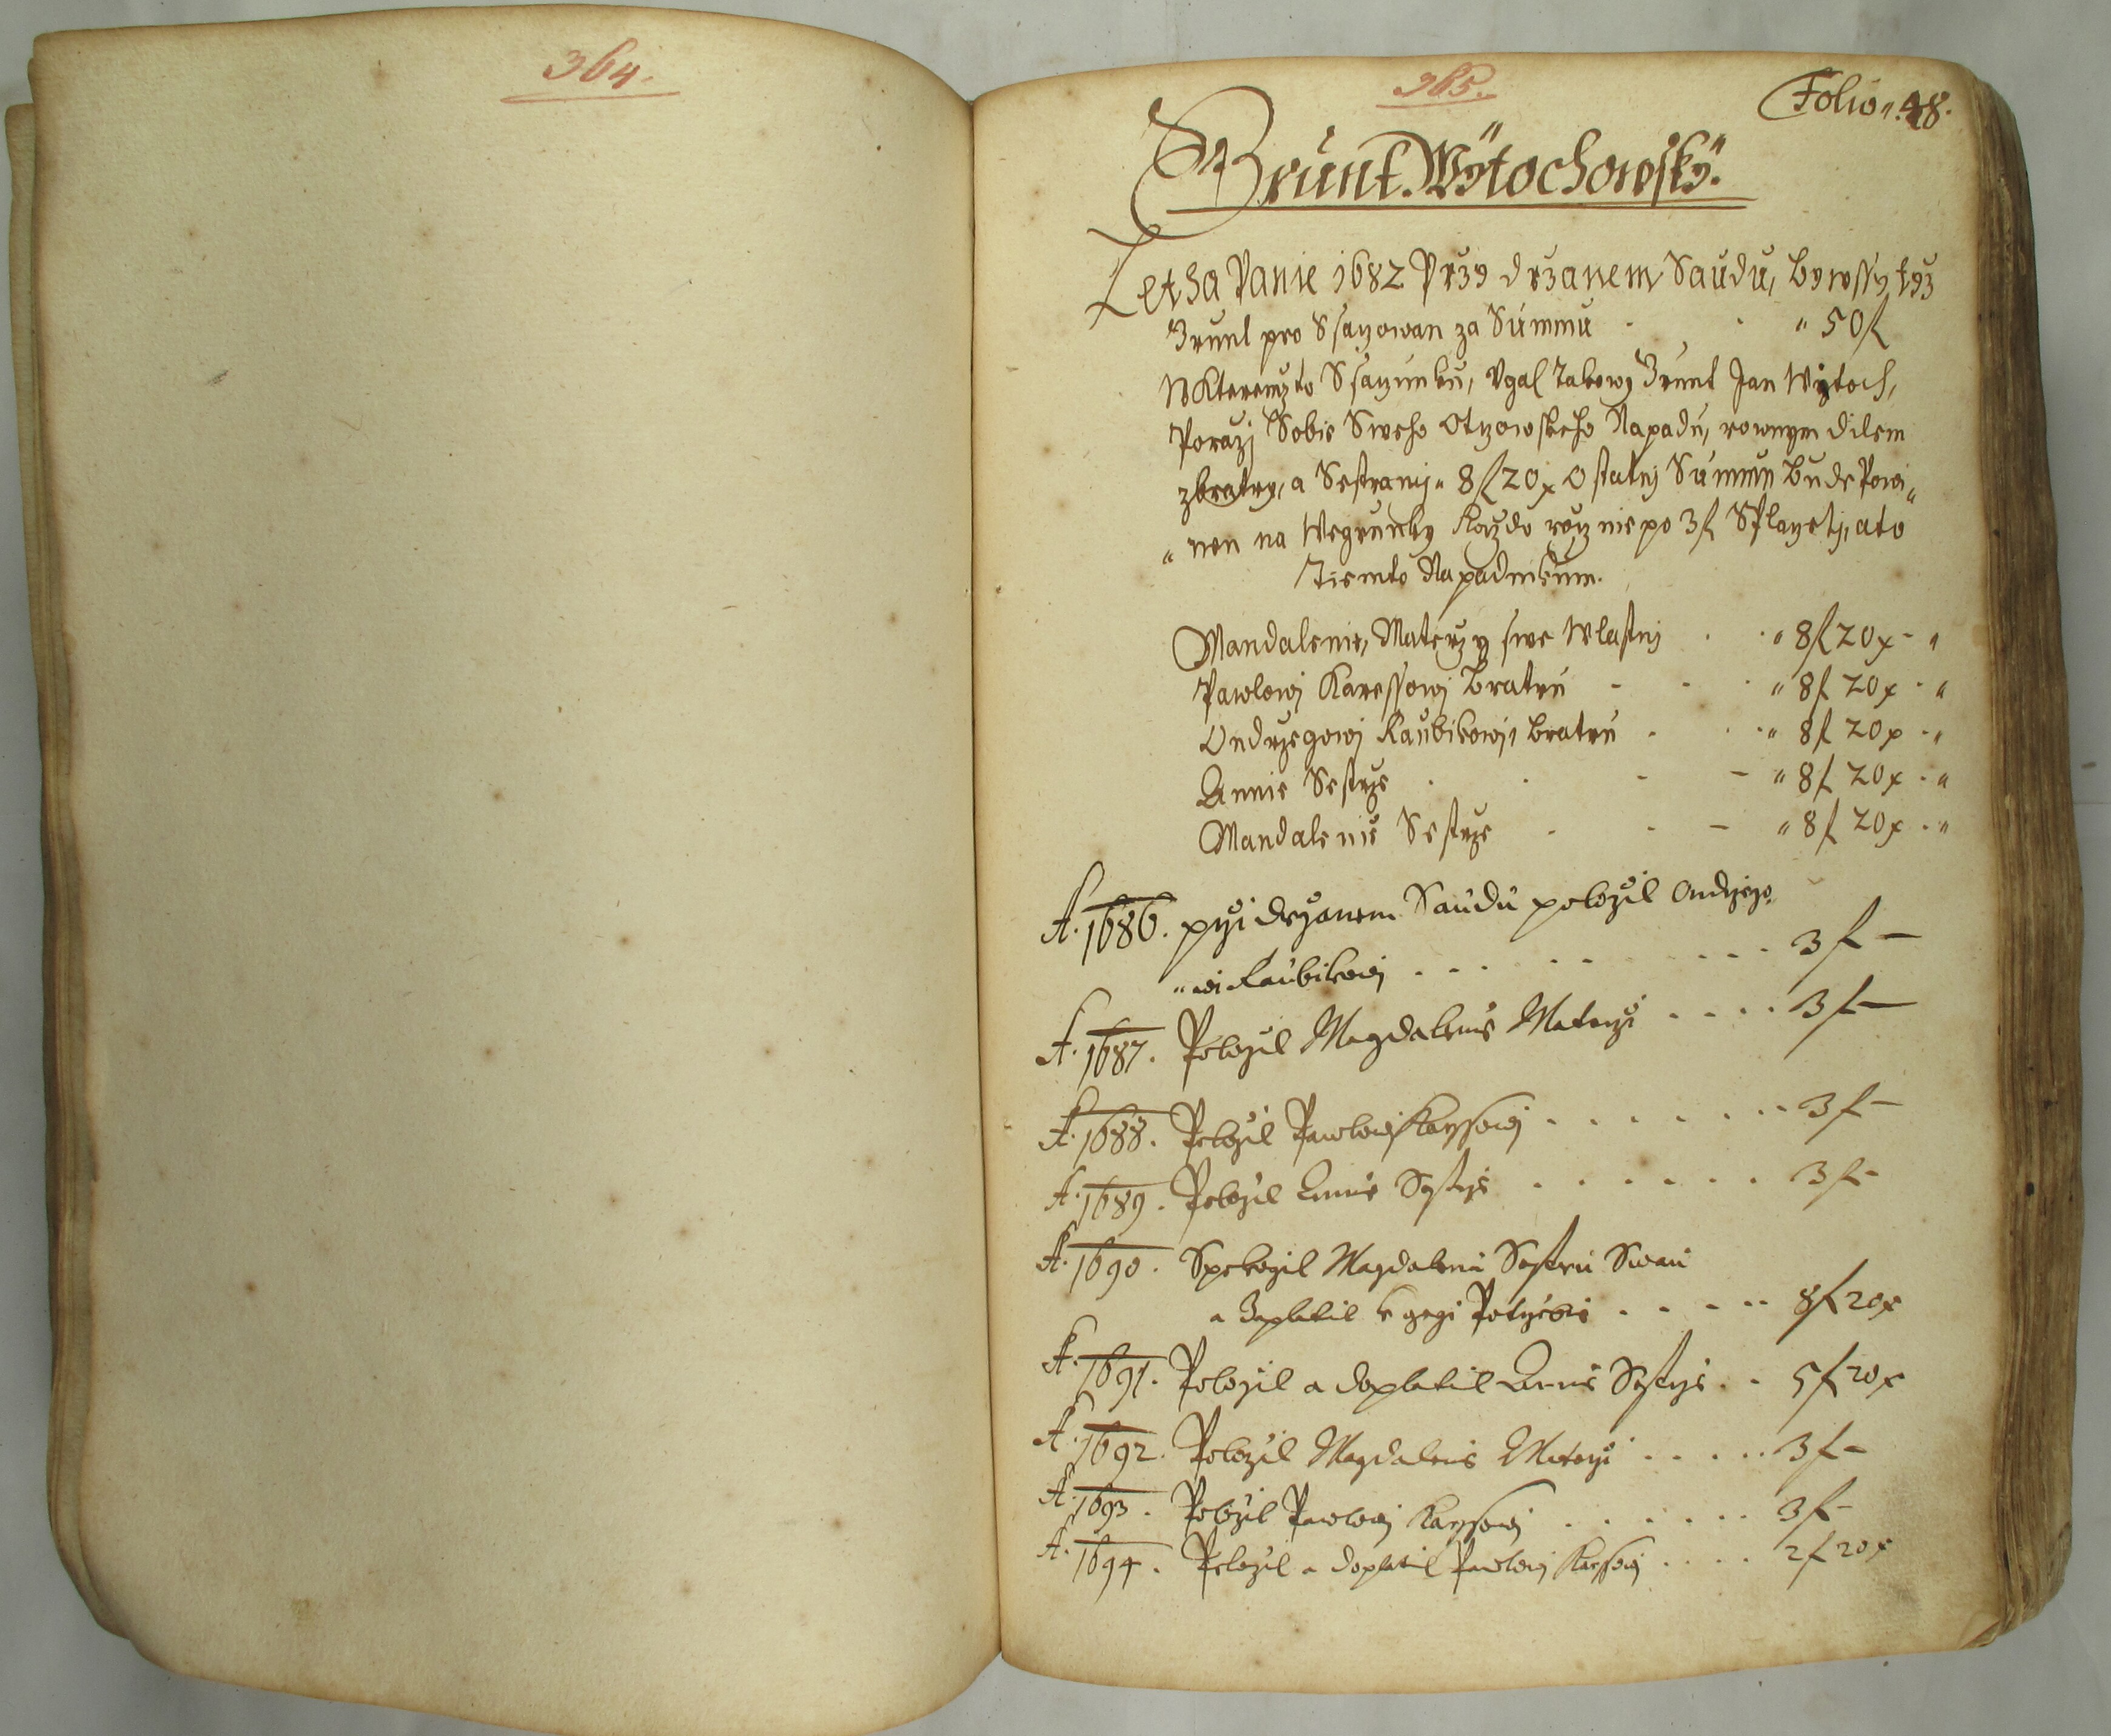 364.
365.
Folio 48.
Grunt. Wÿtochowskÿ.
Letha Panie 1682 Przy drzanem Saudu, bywssy tyz
Grunt pro Ssaczowan za Summu " 50 f
W Kteremzto Ssaczunku, Vgal Takowy Grunt Jan Wytoch,
Porazj Sobie Sweho Otczowskeho Napadu, rownym dilem
z bratry, a Sestramj " 8 f 20 x Ostatnj Summu bude Powi"
"nen na Wegrunky Kazdo rocznie po 3 f Splaczetj, a to
Tiemto Napadnikum.
Mandalenie, Materzy swe Wlastnj " 8 f 20 x - "
Pawlowj Karessowj Bratru - " 8 f 20 x - "
Ondrzegowj Kaubikowj, bratru " 8 f 20 x - "
Annie Sestrze - " 8 f 20 x - "
Mandalenie Sestrze - " 8 f 20 x - "
A. 1686. przi drzanem Saudu polozil Ondrzego"
"wi Kaubikowj 3 f -
A. 1687. Polozil Magdalenie Materzi 3 f -
A. 1688. Polozil Pawlowj Karssowj 3 f -
A. 1689. Polozil Annie Sestrze 3 f -
A. 1690. Spokogil Magdalenu Sestru Swau
a Zaplatil k gegi Potrzebie 8 f 20 x
A. 1691. Polozil a doplatil Annie Sestrze 5 f 20 x
A. 1692. Polozil Magdalenie Materzi 3 f -
A. 1693. Polozil Pawlowj Karssowj 3 f -
A. 1694. Polozil a doplatil Pawlowj Karssowj 2 f 20 x